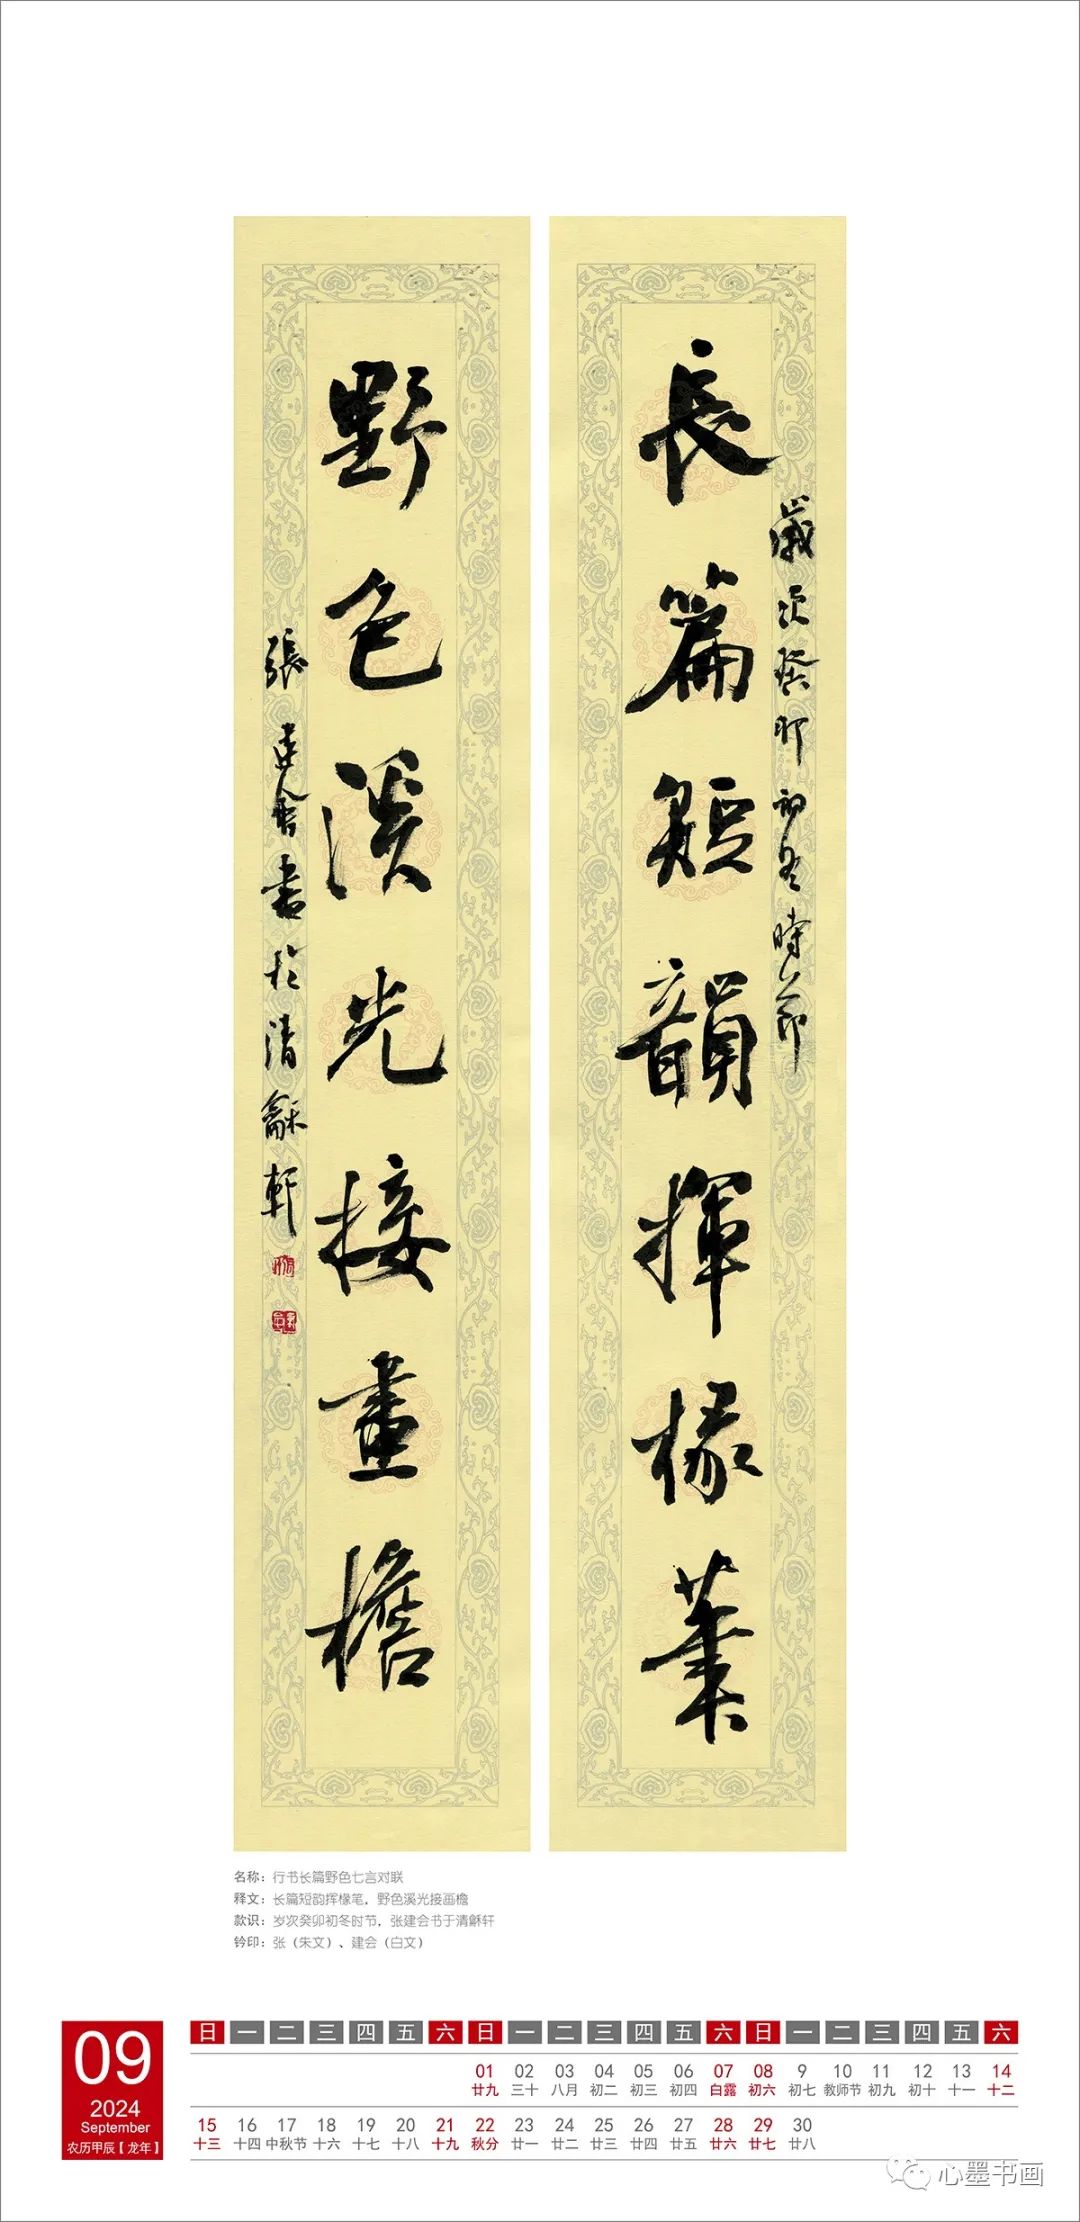 長篇短韻揮椽筆
歲次癸卯初冬時節
野色溪光接畫檐
張建會書於清龢軒
名称：行书长篇野色七言对联
释文：长篇短韵挥椽笔，野色溪光接画檐
款识：岁次癸卯初冬时节，张建会书于清龢轩
钤印：张（朱文）、建会（白文）
09
2024
September
农历甲辰【龙年】
日 一 二 三 四 五 六 日 一 二 三 四 五 六 日 一 二 三 四 五 六
01 02 03 04 05 06 07 08 9 10 11 12 13 14
廿九 三十 八月 初二 初三 初四 白露 初六 初七 教师节 初九 初十 十一 十二
15 16 17 18 19 20 21 22 23 24 25 26 27 28 29 30
十三 十四 中秋节 十六 十七 十八 十九 秋分 廿一 廿二 廿三 廿四 廿五 廿六 廿七 廿八
心墨书画